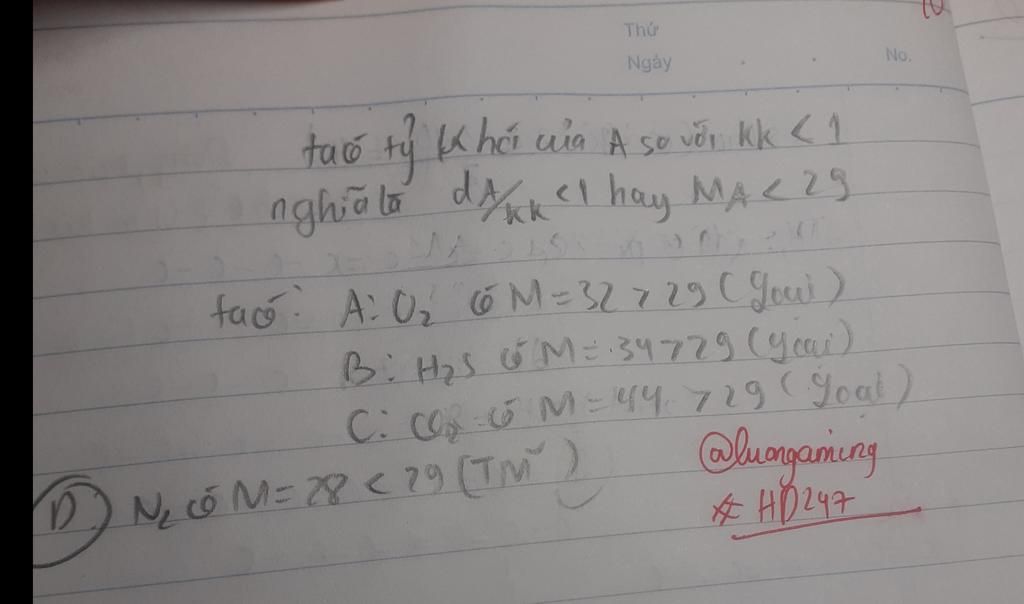 Thứ
Ngày No.
ta có tỷ khối của A so với kk < 1
nghĩa là dA/kk <1 hay MA < 29
ta có: A: O2 có M = 32 > 29 (loại)
B: H2S có M = 34 > 29 (loại)
C: CO2 có M = 44 > 29 (loại)
D. N2 có M = 28 < 29 (TM)
@luongaming
* HD247